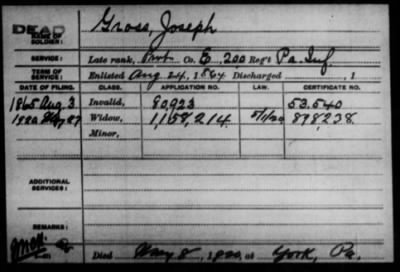 DEAD Gross, Joseph
NAME OF SOLDIER:
SERVICE: Late rank, Prvt. Co. E, 200 Reg't Pa. Inf.
TERM OF SERVICE: Enlisted Aug 24, 1864 Discharged , 1
DATE OF FILING. CLASS. APPLICATION NO. LAW. CERTIFICATE NO.
1865 Aug. 3 Invalid, 80,923 53.540
1920 May 27 Widow, 1,158,214 5/1/20 898,238.
Minor,
ADDITIONAL SERVICES:
REMARKS:
Died May 8, 1920, at York, Pa.